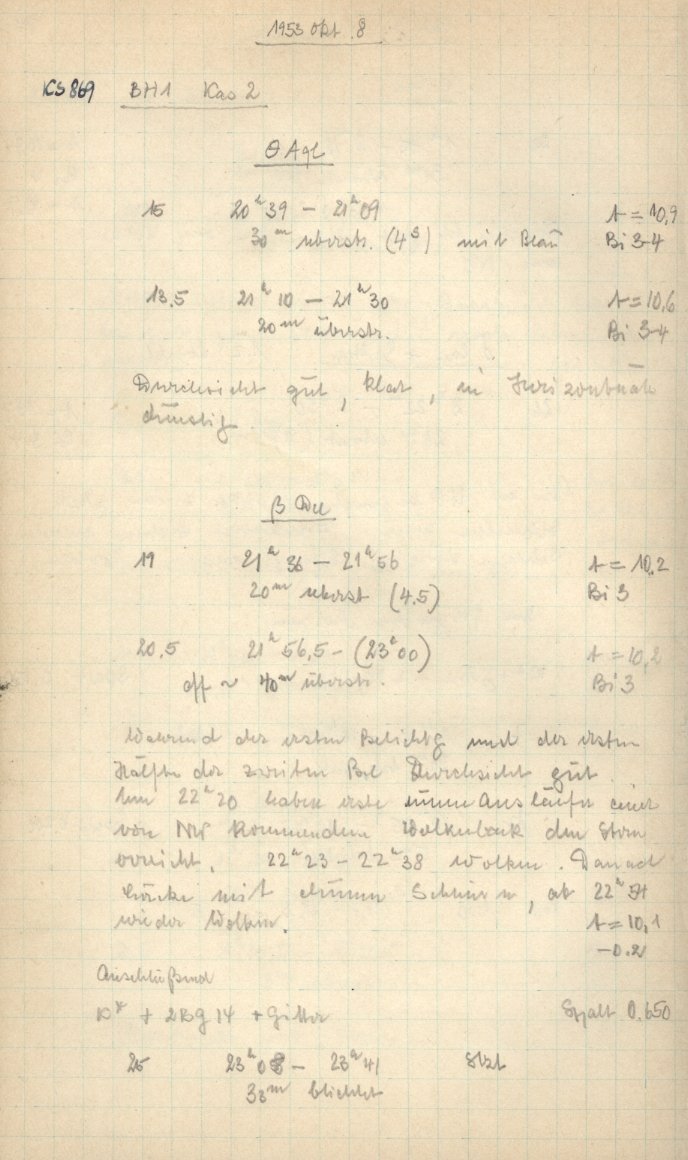 1953 Okt. 8
KS 869 BH1 Kas 2
θ Aql
15 20ʰ39 – 21ʰ09 t = 10,9
30ᵐ überstr. (4ˢ) mit Blau Bi 3-4
13,5 21ʰ10 – 21ʰ30 t = 10,6
20ᵐ überstr. Bi 3-4
Durchsicht gut, klar, in Horizontnähe
dunstig.
β Del
19 21ʰ36 – 21ʰ56 t = 10,2
20ᵐ überst (4,5) Bi 3
20,5 21ʰ56,5 – (23ʰ00) t = 10,2
eff ~ 40ᵐ überstr. Bi 3
Während der ersten Belichtg und der ersten
Hälfte der zweiten Bel Durchsicht gut.
Um 22ʰ20 haben erste dünne Ausläufer einer
von NW kommenden Wolkenbank den Stern
erreicht. 22ʰ23 – 22ʰ38 Wolken. Danach
Lücke mit dünnen Schleiern, ab 22ʰ
wieder Wolken.
t = 10,1
– 0.2
Anschließend
+ 2 Bg 14 + Gitter Spalt 0.650
25 23ʰ08 – 23ʰ41
33ᵐ belichtet